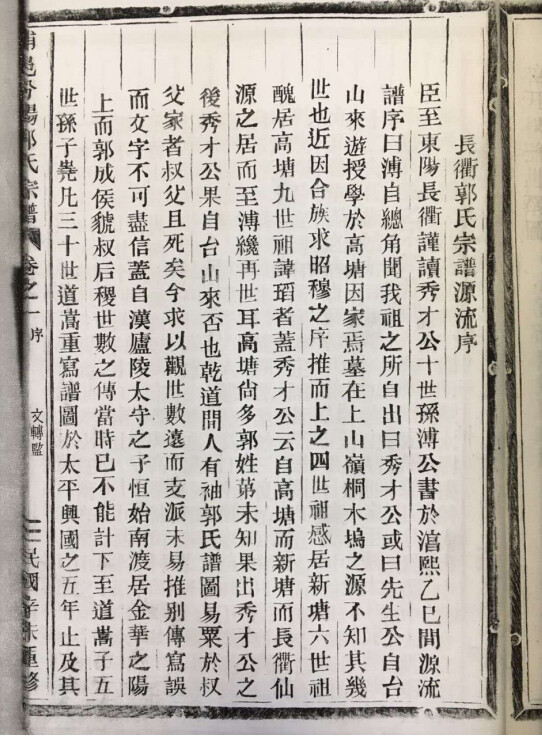 長衢郭氏宗譜源流序
臣至東陽長衢謹讀秀才公十世孫溥公書於淳熙乙巳間源流
譜序曰溥自總角聞我祖之所自出曰秀才公或曰先生公自台
山來遊授學於高塘因家焉墓在上山嶺桐木塢之源不知其幾
世也近因合族求昭穆之序推而上之四世祖感居新塘六世祖
醜居高塘九世祖諱瑫者蓋秀才公云自高塘而新塘而長衢仙
源之居而至溥纔再世耳高塘尙多郭姓第未知果出秀才公之
後秀才公果自台山來否也乾道間人有袖郭氏譜圖易粟於叔
父家者叔父且死矣今求以觀世數遠而支派未易推别傳寫誤
而文字不可盡信蓋自漢廬陵太守之子恒始南渡居金華之陽
上而郭成侯虢叔后稷世數之傳當時已不能計下至道嵩子五
世孫子堯凡三十世道嵩重寫譜圖於太平興國之五年止及其
浦邑汾陽郭氏宗譜 卷之一 序 文轉監 民國辛未重修